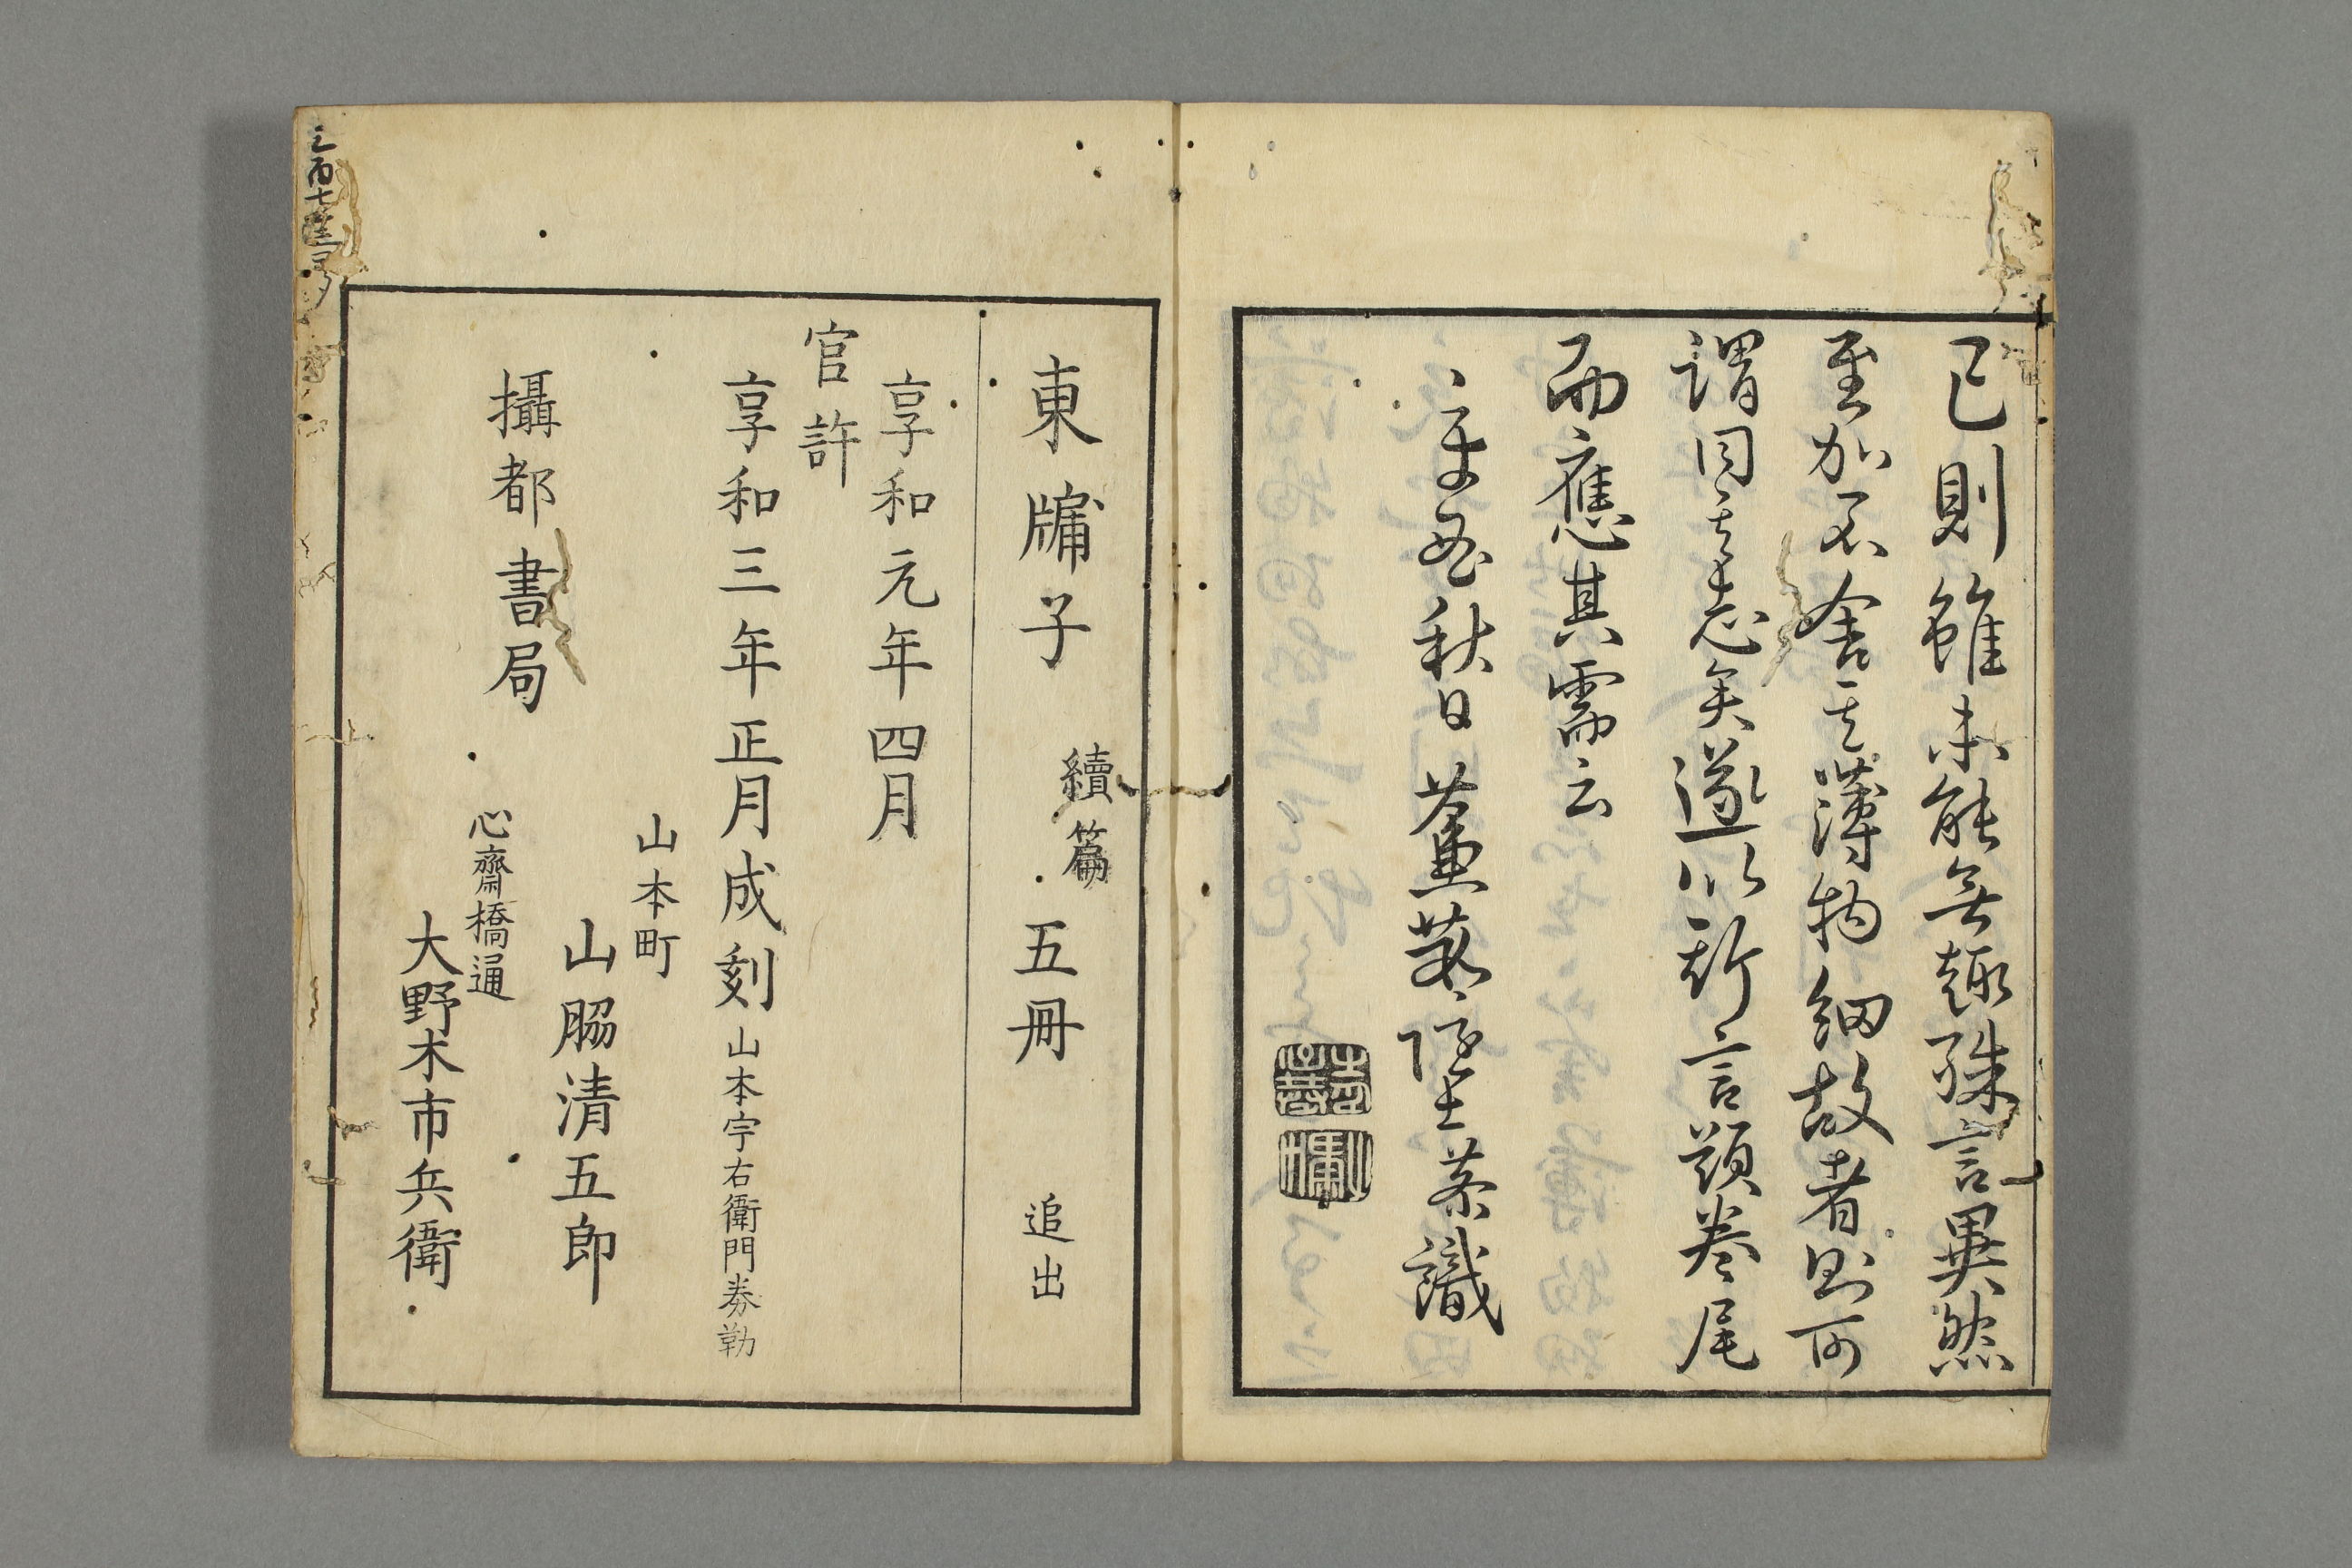 已則雖未能無趣殊言異然
至加不舍其薄物細故者則可
謂同其志矣遂以斯言題卷尾
而應其需云
享和 秋日 蘆菴隠士 識
東牖子 續篇 五冊 追出
享和元年四月
官許
享和三年正月成刻 山本宇右衛門劵勒
山本町
山脇清五郎
攝都書局
心齋橋通
大野木市兵衛